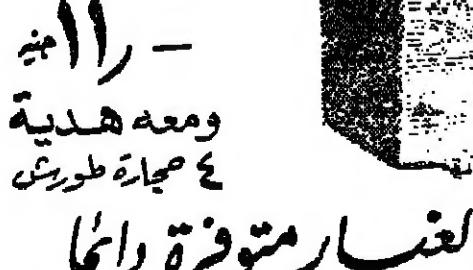 ١١٫- جنيه
ومعه هدية
٤ حجارة طورش
لغيار متوفرة دائما